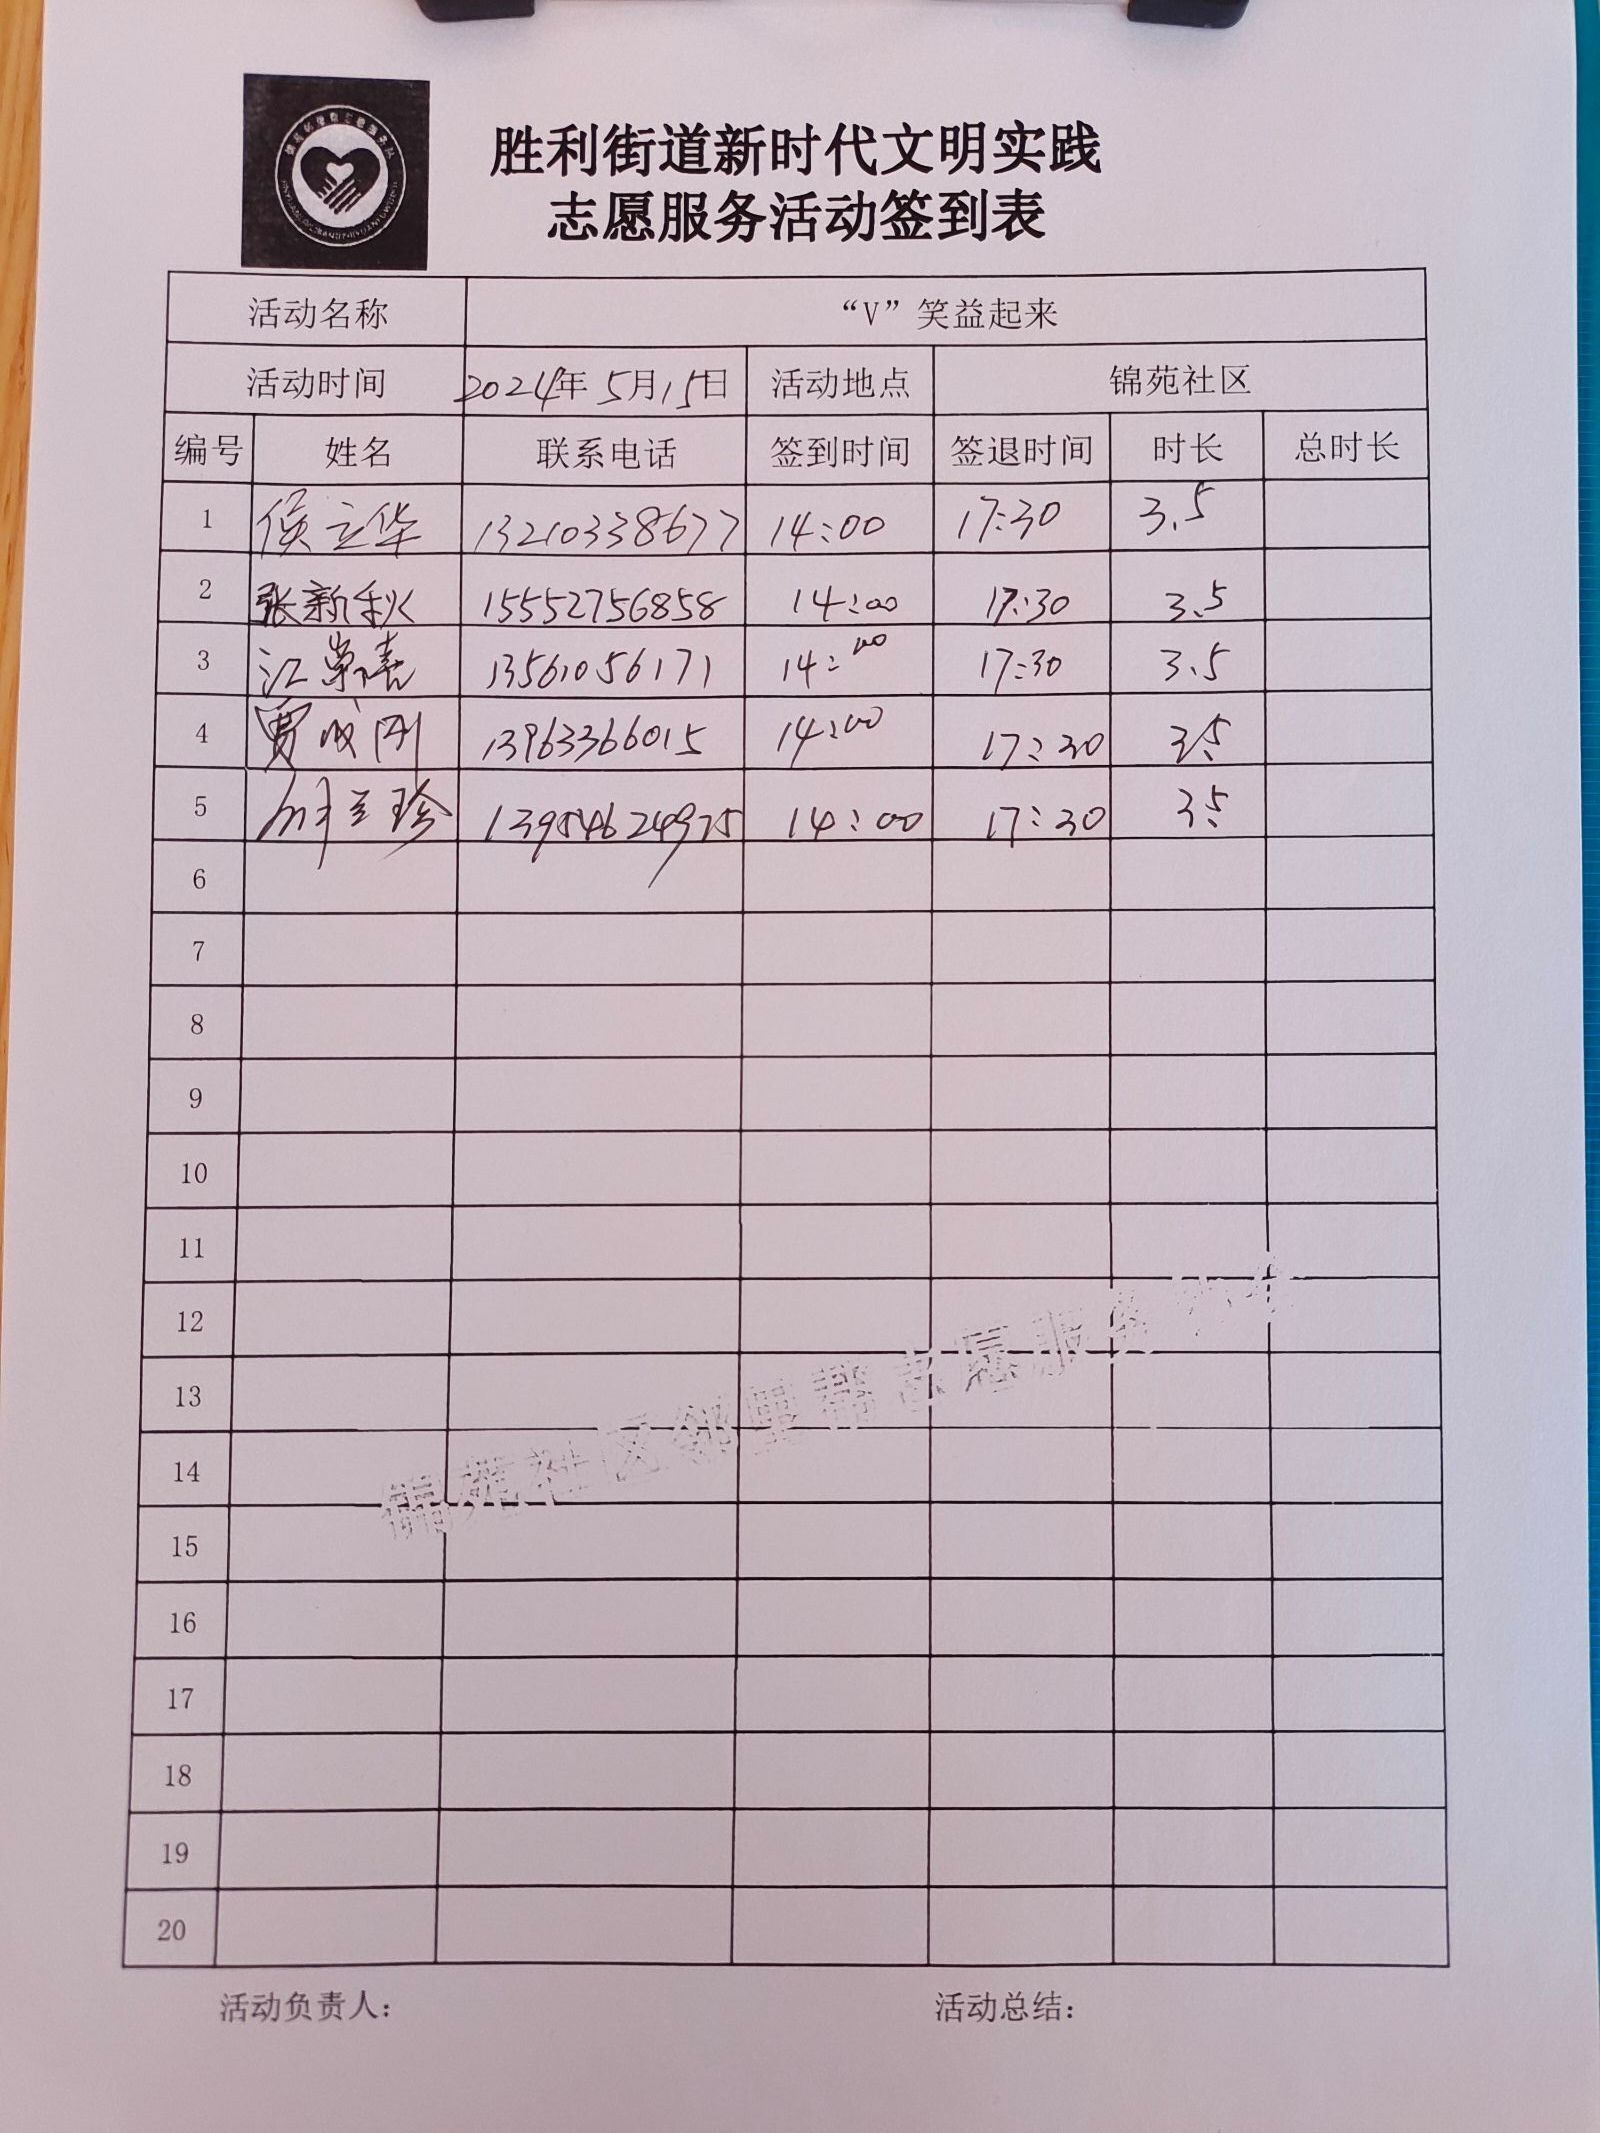 胜利街道新时代文明实践
志愿服务活动签到表
活动名称 “V”笑益起来
活动时间 2024年5月15日 活动地点 锦苑社区
编号 姓名 联系电话 签到时间 签退时间 时长 总时长
1 侯立华 13210338677 14:00 17:30 3.5
2 张新秋 15552756858 14:00 17:30 3.5
3 江荣清 13561056171 14:00 17:30 3.5
4 贾成刚 13963366015 14:00 17:30 3.5
5 兰珍 13954624975 14:00 17:30 3.5
6
7
8
9
10
11
12
13
14
15
16
17
18
19
20
锦苑社区邻里帮志愿服务
活动负责人： 活动总结：